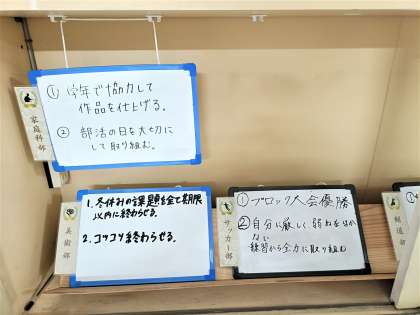 家庭科部
① 学年で協力して
作品を仕上げる。
② 部活の日を大切に
して取り組む。
美術部
1. 冬休みの課題を全て期限
以内に終わらせる。
2. コツコツ終わらせる。
サッカー部
① ブロック大会優勝
② 自分に厳しく弱ねをはか
ない
練習から全力に取り組む
報道部
①